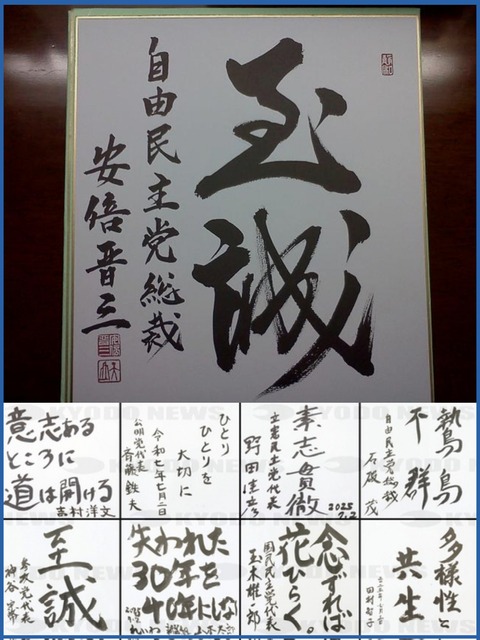 至誠
自由民主党総裁
安倍晋三
KYODO NEWS
意志ある
ところに
道は開ける
吉村洋文
ひとり
ひとりを
大切に
令和七年七月二日
公明党代表
斉藤鉄夫
素志貫徹
立憲民主党代表
野田佳彦
2025
7.2
鷙鳥
不群
自由民主党総裁
石破茂
至誠
参政党代表
神谷宗幣
失われた
30年を
40年にしな
れいわ
念ずれば
花ひらく。
国民民主党代表
玉木雄一郎
多様性と
共生
田村智子